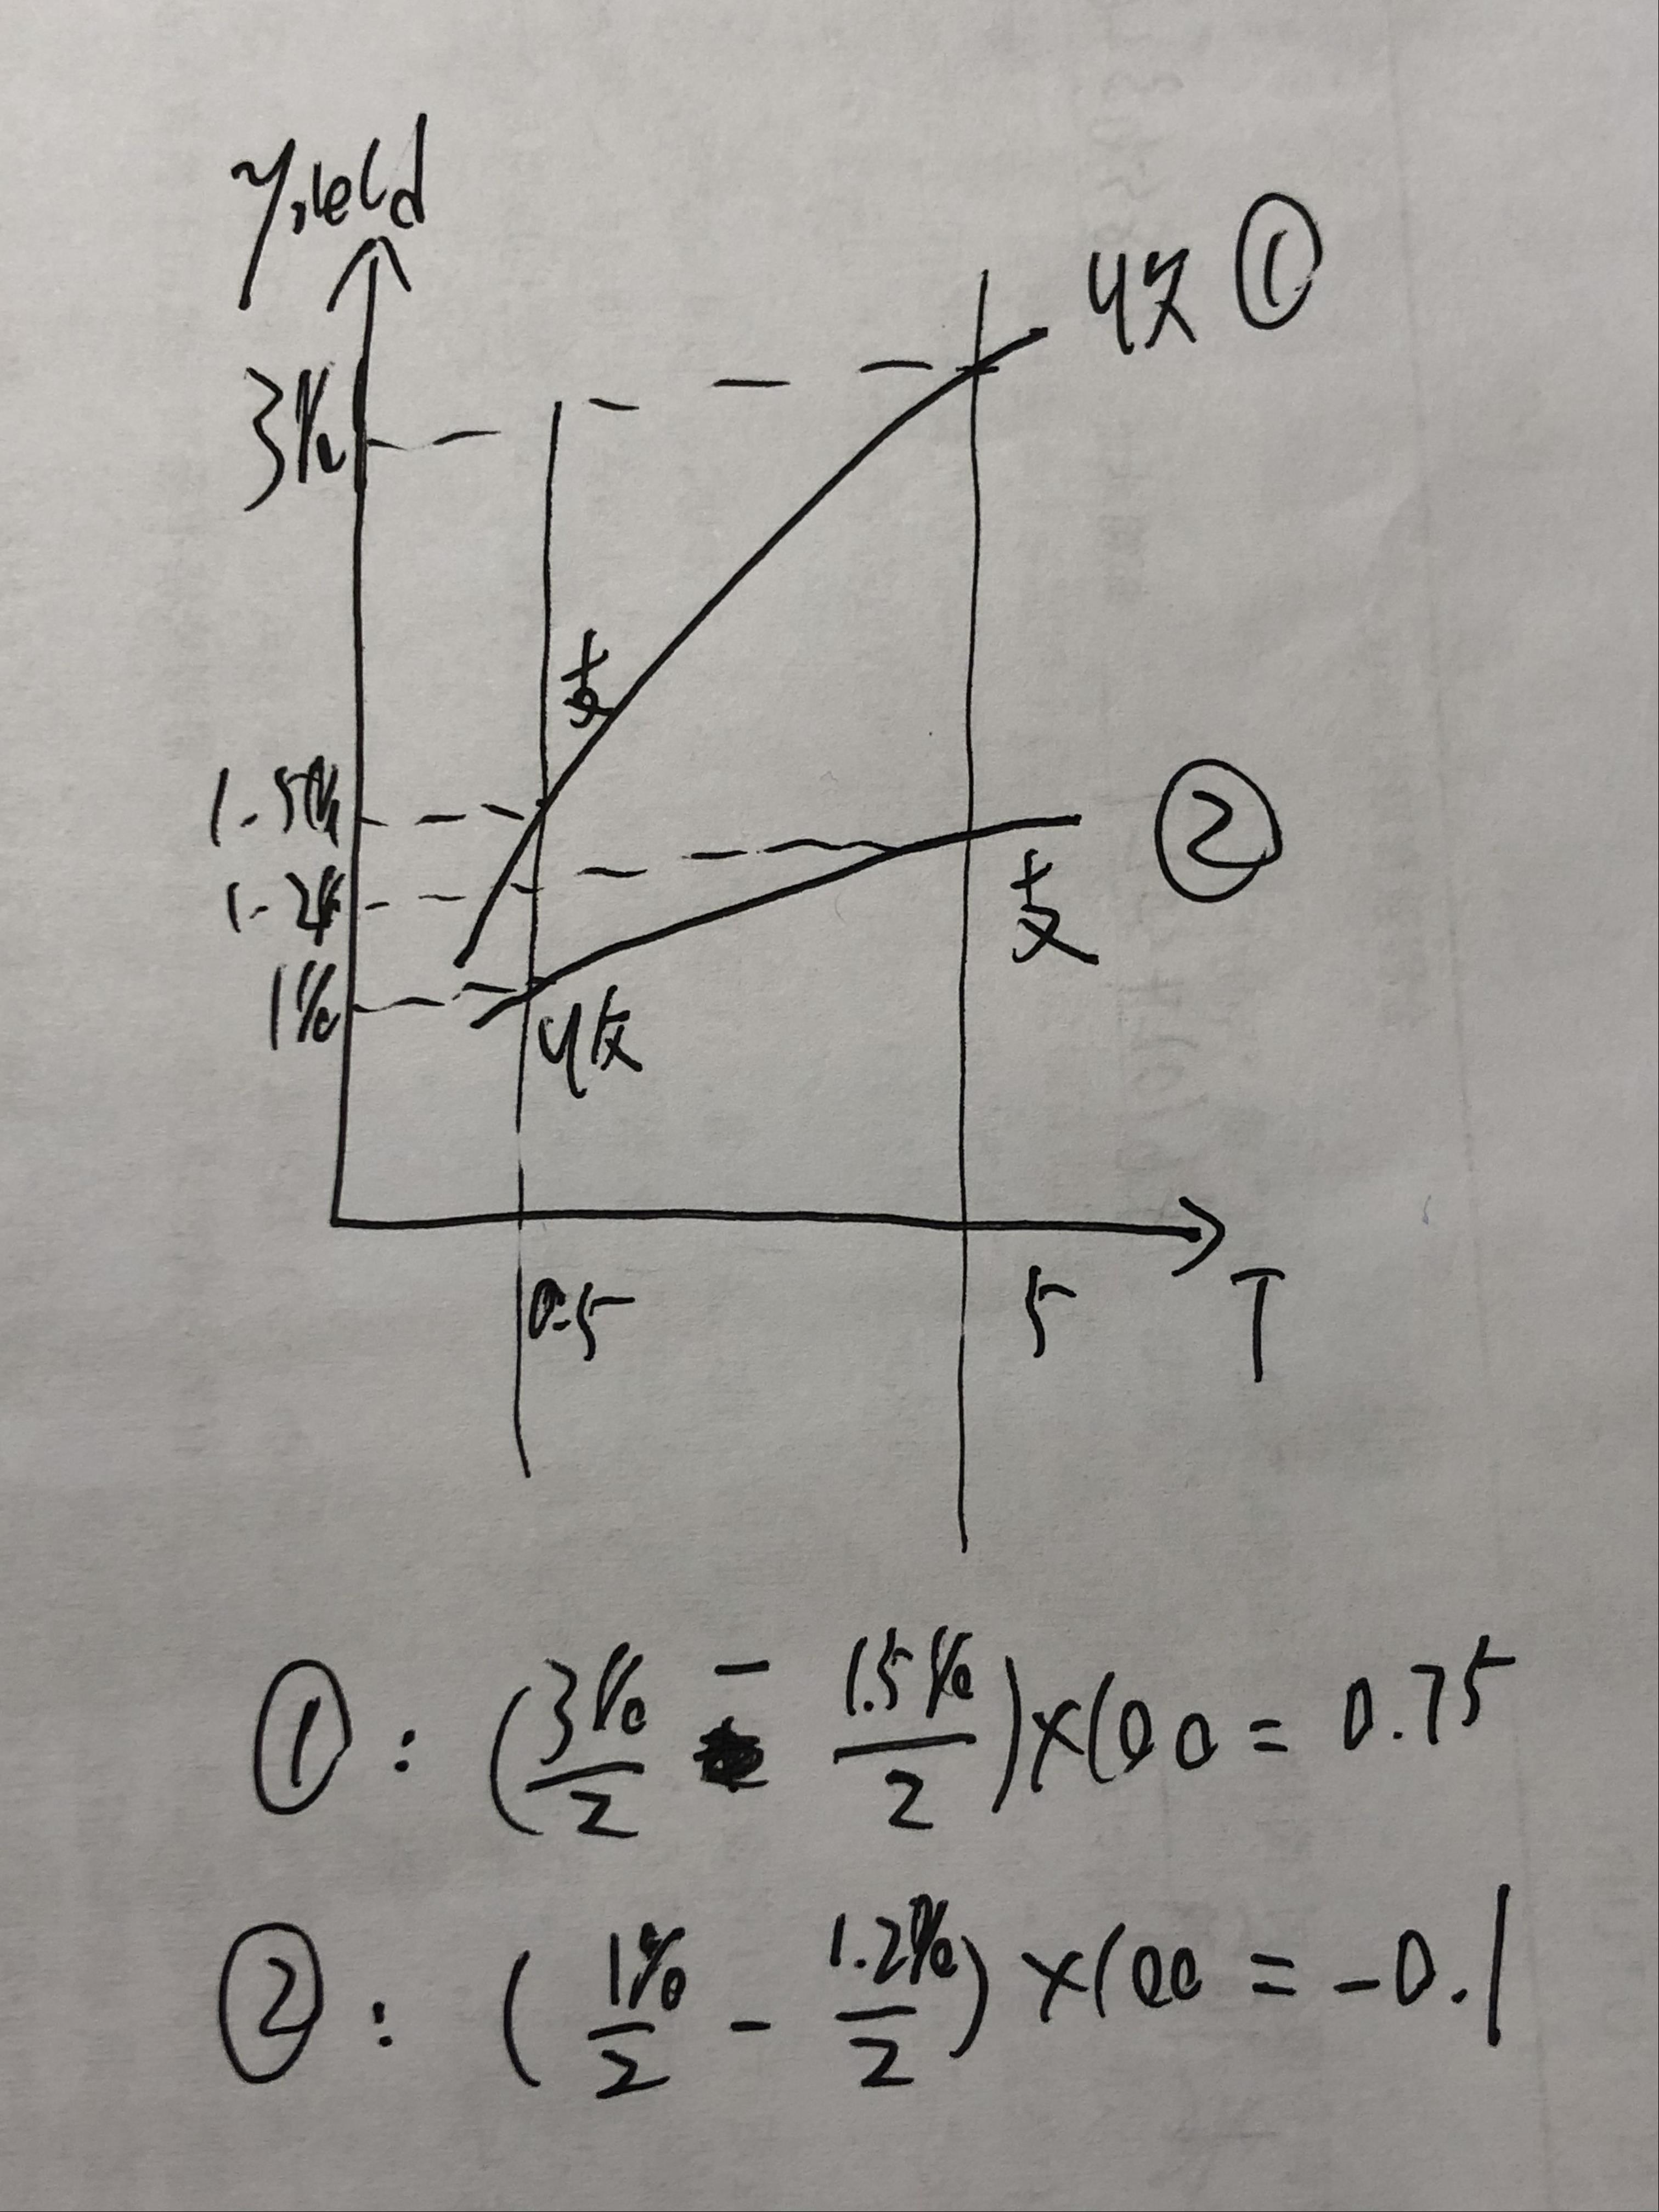 yield
收 ①
3%
支
1.5%
1.2%
②
支
1%
收
0.5
5
T
①: (3%/2 - 1.5%/2)×100 = 0.75
②: (1%/2 - 1.2%/2)×100 = -0.1